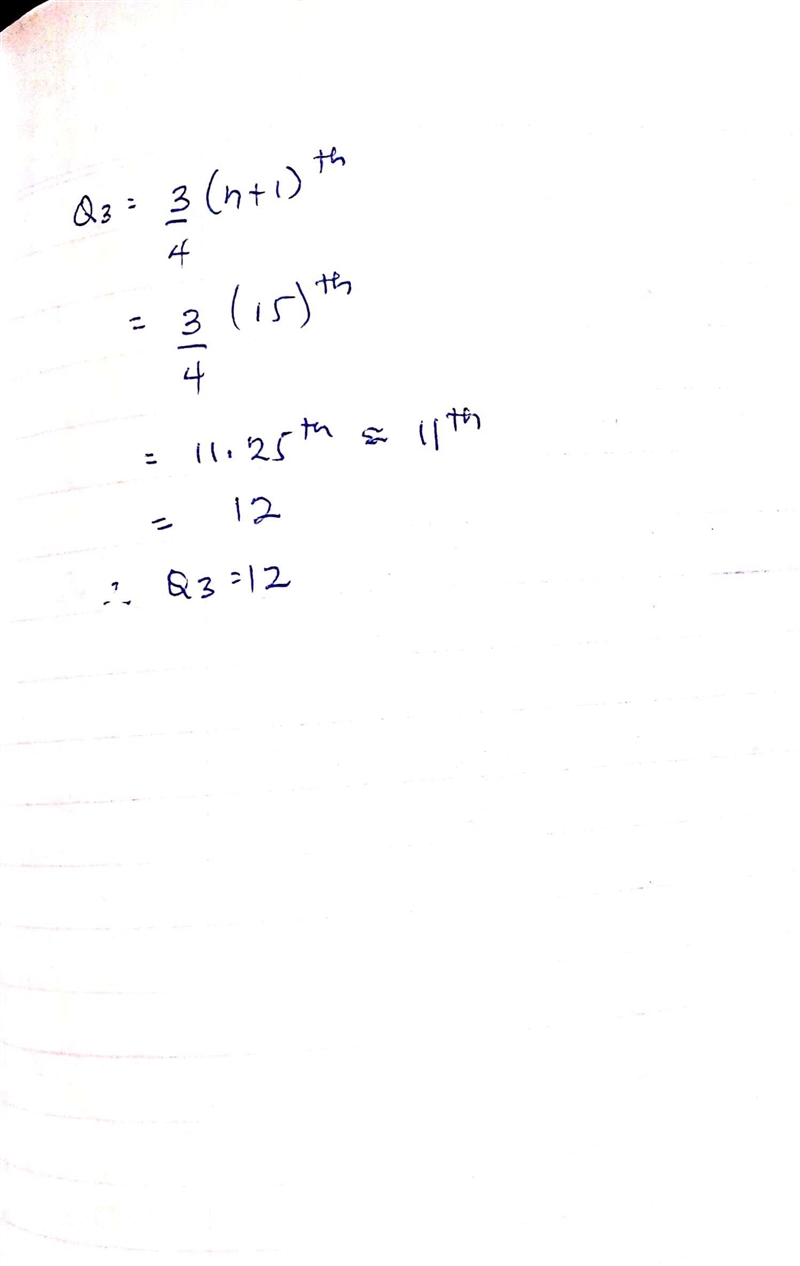 Q3 = 3/4 (n+1)th
= 3/4 (15)th
= 11.25th ≈ 11th
= 12
∴ Q3 = 12